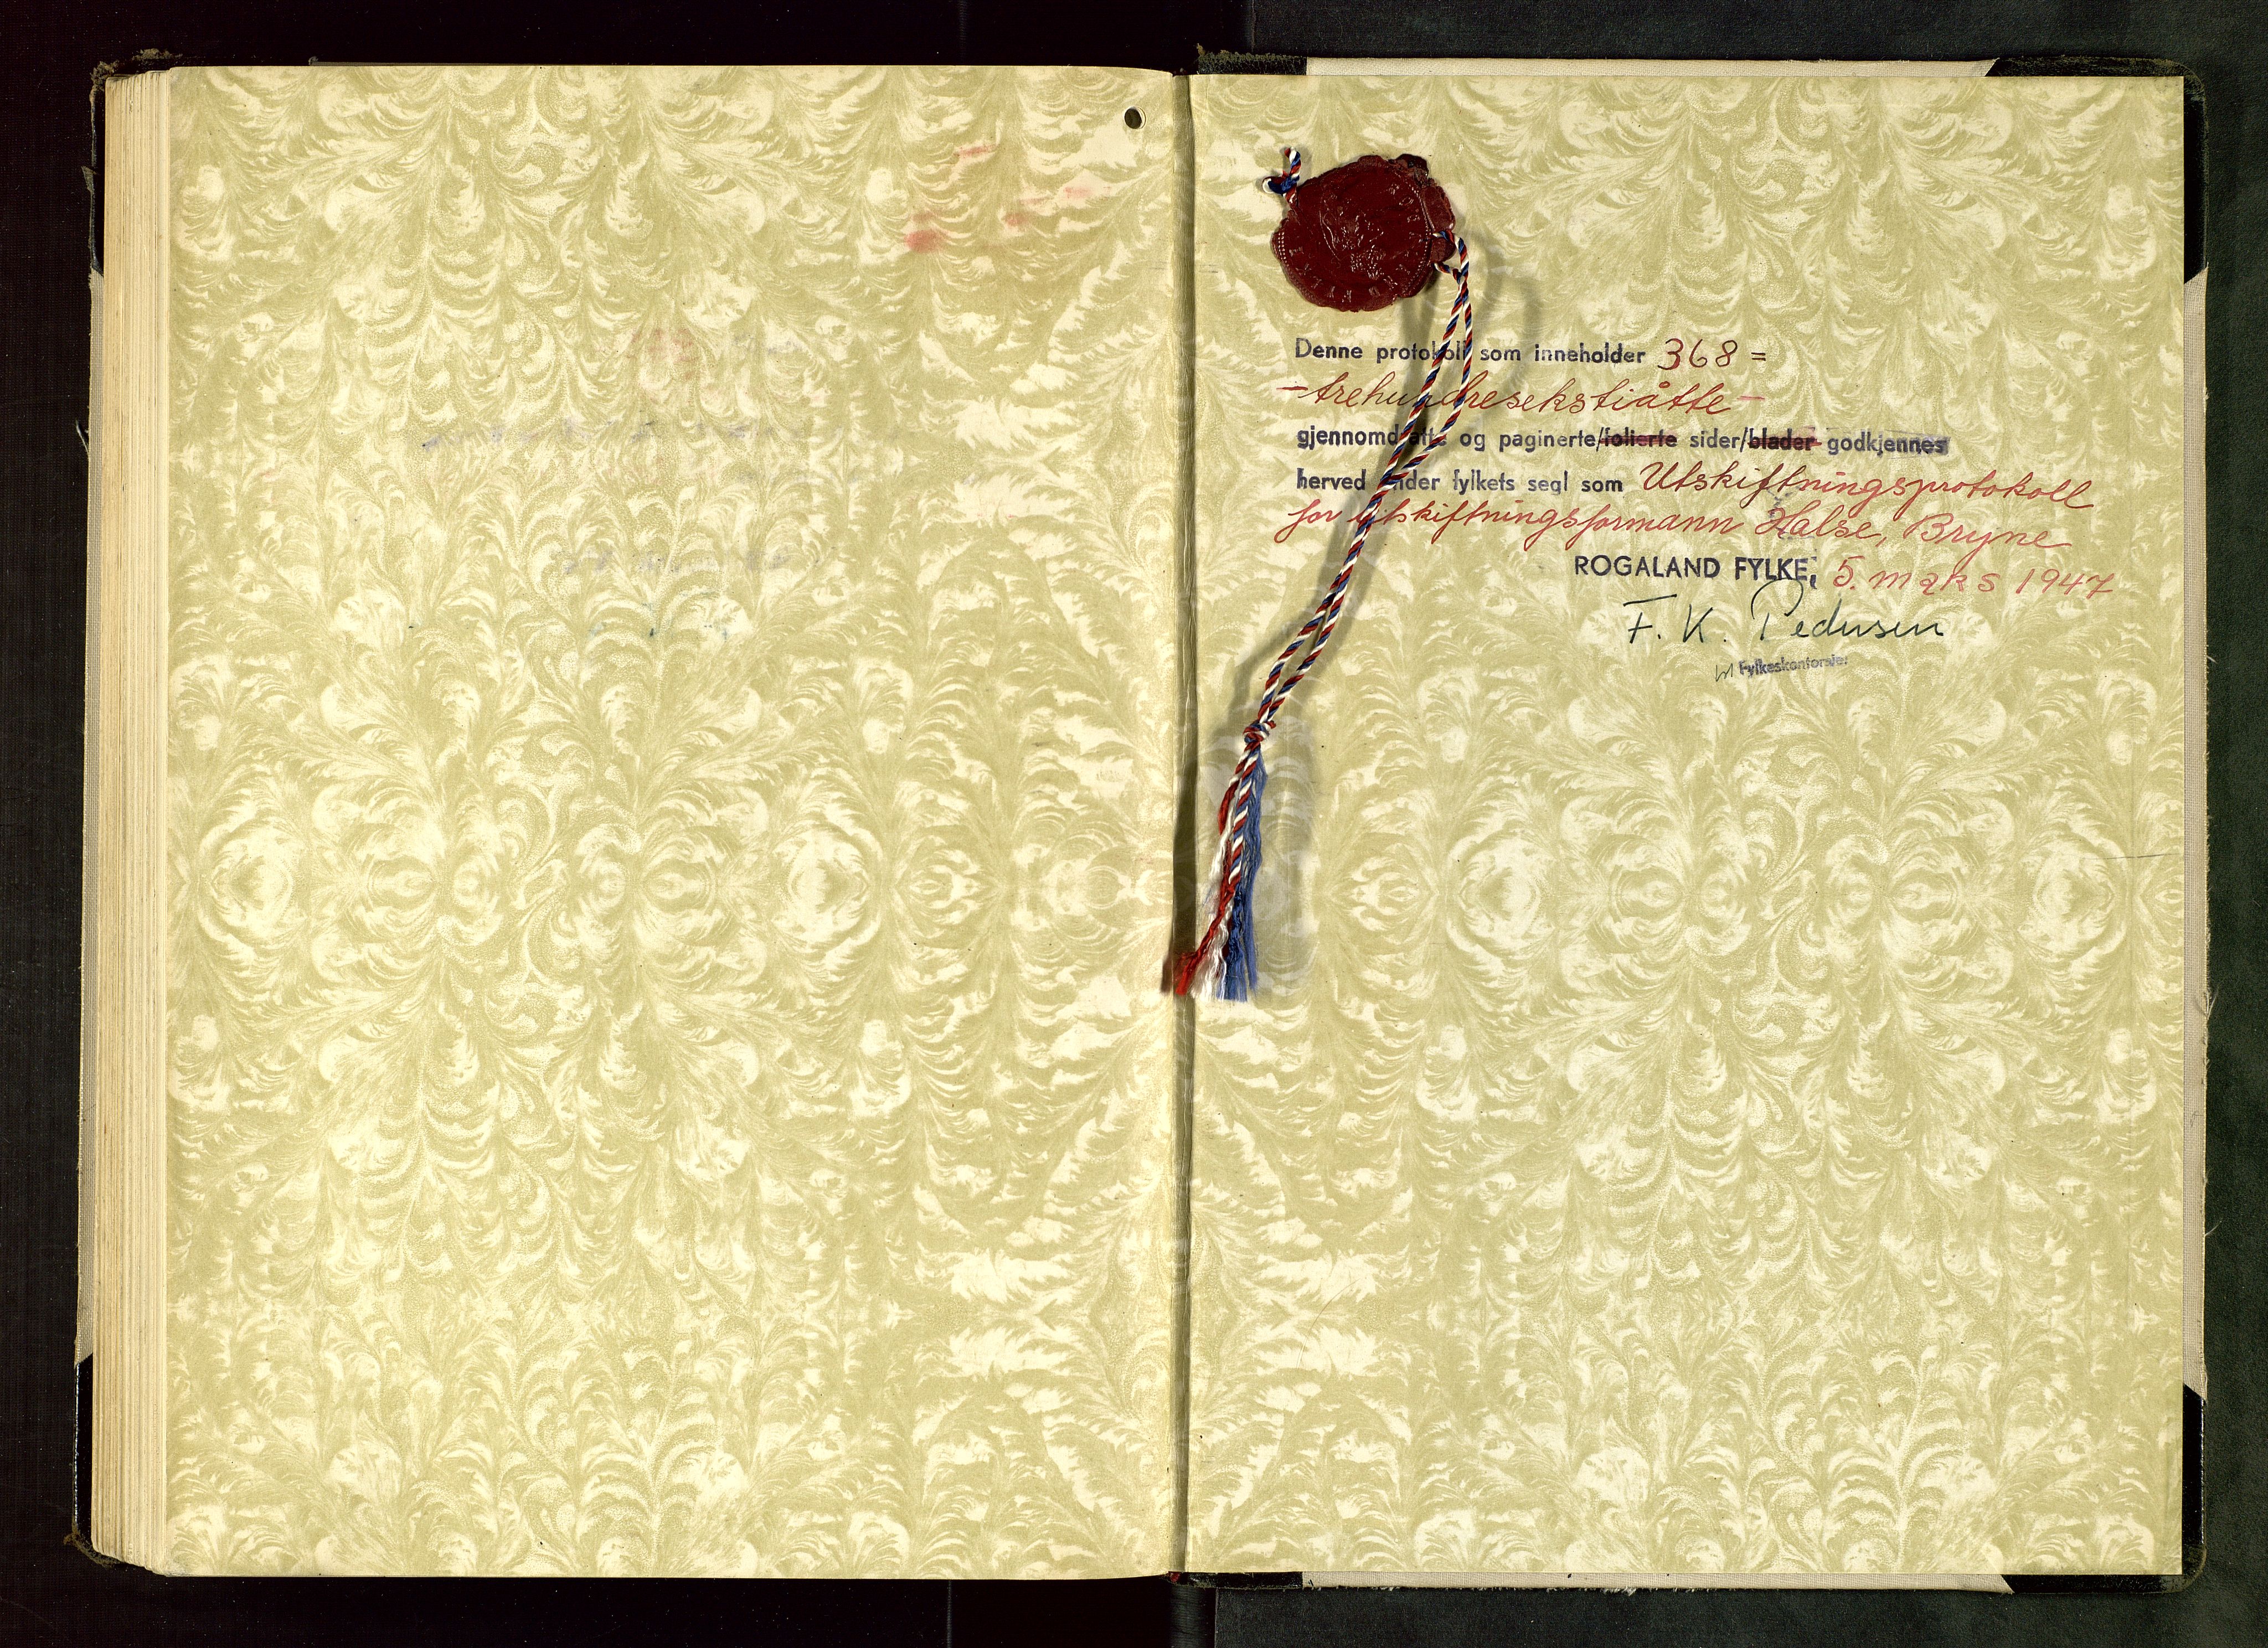 Denne protokoll som inneholder 368 =
- trehundresekstiåtte -
gjennomdratte og paginerte/folierte sider/blader godkjennes
herved under fylkets segl som Utskiftningsprotokoll
for utskiftningsformann Halse, Bryne
ROGALAND FYLKE, 5. mars 1947
F. K. Pedersen
Fylkeskontorsjef